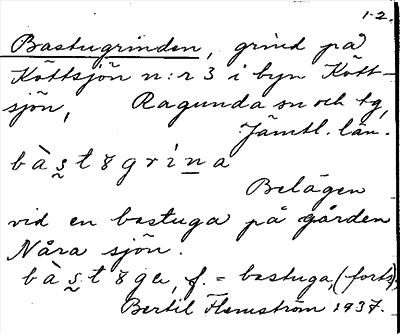 1-2.
Bastugrinden, grind på
Köttsjön n:r 3 i byn Kött-
sjön, Ragunda sn och tg,
Jämtl. län.
bàs̰tȣgrìna
Belägen
vid en bastuga på gården
Nåra sjön.
bàs̰tȣga, f. = bastuga, (forts).
Bertil Flemström 1937.